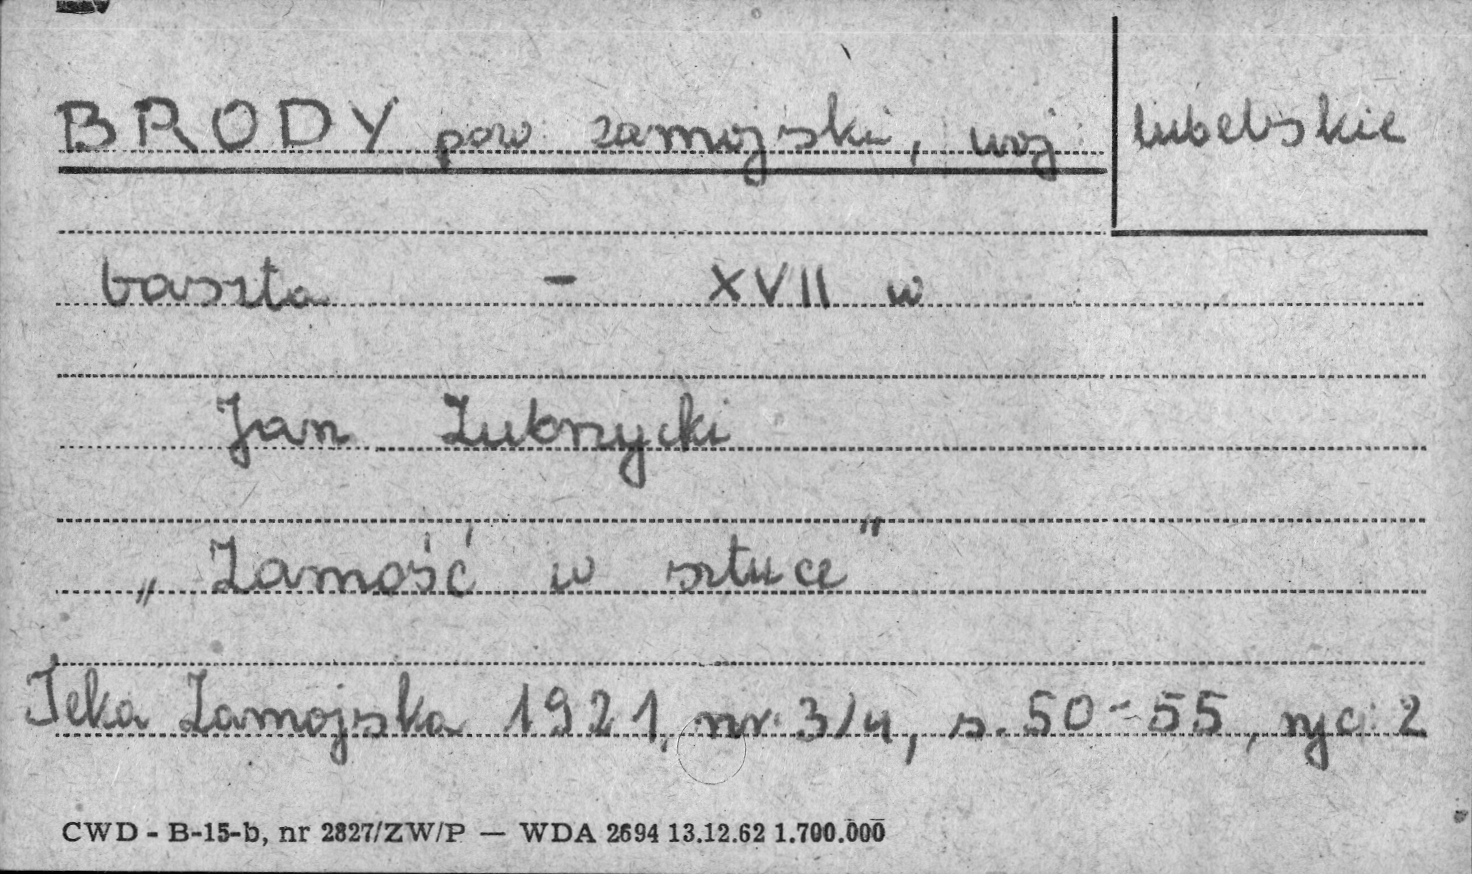 BRODY pow. zamojski, woj. lubelskie
baszta - XVII w
Jan Zubrzycki
„Zamość w sztuce"
Teka Zamojska 1921, nr 3/4, s. 50-55, ryc. 2
CWD - B-15-b, nr 2827/ZW/P — WDA 2694 13.12.62 1.700.000